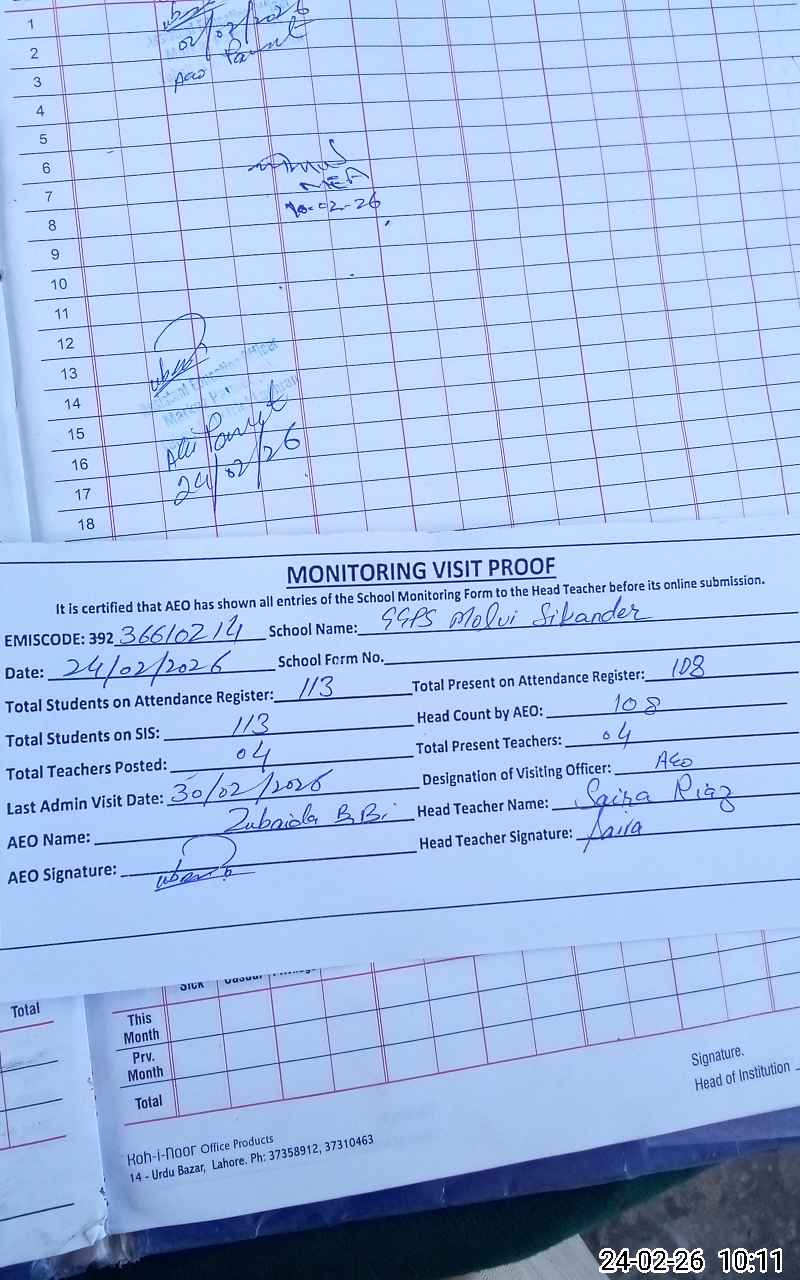 1
2
02/02/2026
3
4
5
6
7
MEA
8
-02-26
9
10
11
12
13
14
15
16
24/02/26
17
18
MONITORING VISIT PROOF
It is certified that AEO has shown all entries of the School Monitoring Form to the Head Teacher before its online submission.
EMISCODE: 392 36610214 School Name: GGPS Molvi Sikander
Date: 24/02/2026 School Form No.
Total Students on Attendance Register: 113 Total Present on Attendance Register: 108
Total Students on SIS: 113 Head Count by AEO: 108
Total Teachers Posted: 04 Total Present Teachers: 04
Last Admin Visit Date: 30/02/2026 Designation of Visiting Officer: AEO
AEO Name: Zubaida BiBi Head Teacher Name: Saira Riaz
AEO Signature: Head Teacher Signature: Saira
Sick Casual Privilege
Total
This Month
Prv. Month
Total
Signature.
Head of Institution
Koh-i-Noor Office Products
14 - Urdu Bazar, Lahore. Ph: 37358912, 37310463
24-02-26 10:11